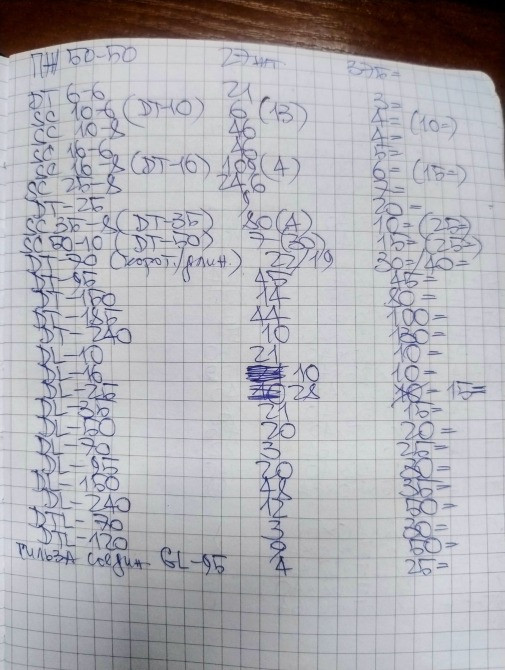 ПН 50-50 27шт 375=
DT 6-6 21 3=
SC 10-6 (DT-10) 6 (13) 4= (10=)
SC 10-8 46 4=
SC 16-6 46 5=
SC 16-8 (DT-16) 108 (4) 6= (15=)
SC 25-8 246 7=
DT-25 20=
SC 35-8 (DT-35) 80 (4) 10= (25=)
SC 50-10 (DT-50) 7 15=
DT-70 (корот./длин.) 22/19 30=/40=
DT-95 45 45=
DT-150 14 80=
DT-185 44 100=
DT-240 10
DL-10 21 10=
DL-16 10 10=
DL-25 28 15=
DL-35 21 15=
DL-50 20 20=
DL-70 3 25=
DL-95 20
DL-150 48
DL-240 12
DTL-70 3
DTL-120 9
гильза соедин. GL-95 4 25=